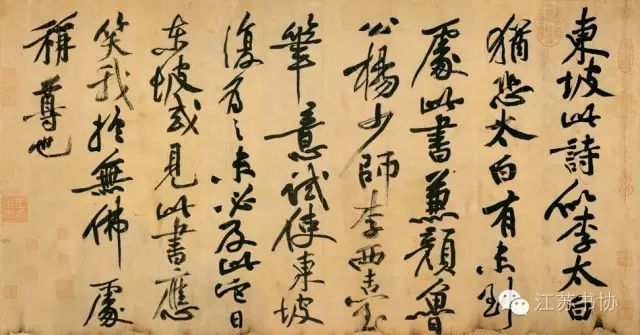 東坡此詩似李太白
猶恐太白有未到
處此書兼顏魯
公楊少師李西臺
筆意試使東坡
復為之未必及此它日
東坡或見此書應
笑我於無佛處
稱尊也
江苏书协